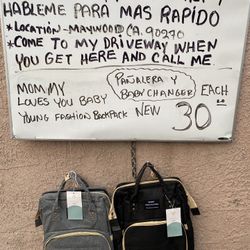 HABLEME PARA MAS RAPIDO
*LOCATION-MAYWOOD CA. 90270
*COME TO MY DRIVEWAY WHEN
YOU GET HERE AND CALL ME.
PAÑALERA Y
BABY CHANGER EACH
MOMMY
LOVES YOU BABY
YOUNG FASHION BACKPACK NEW 30